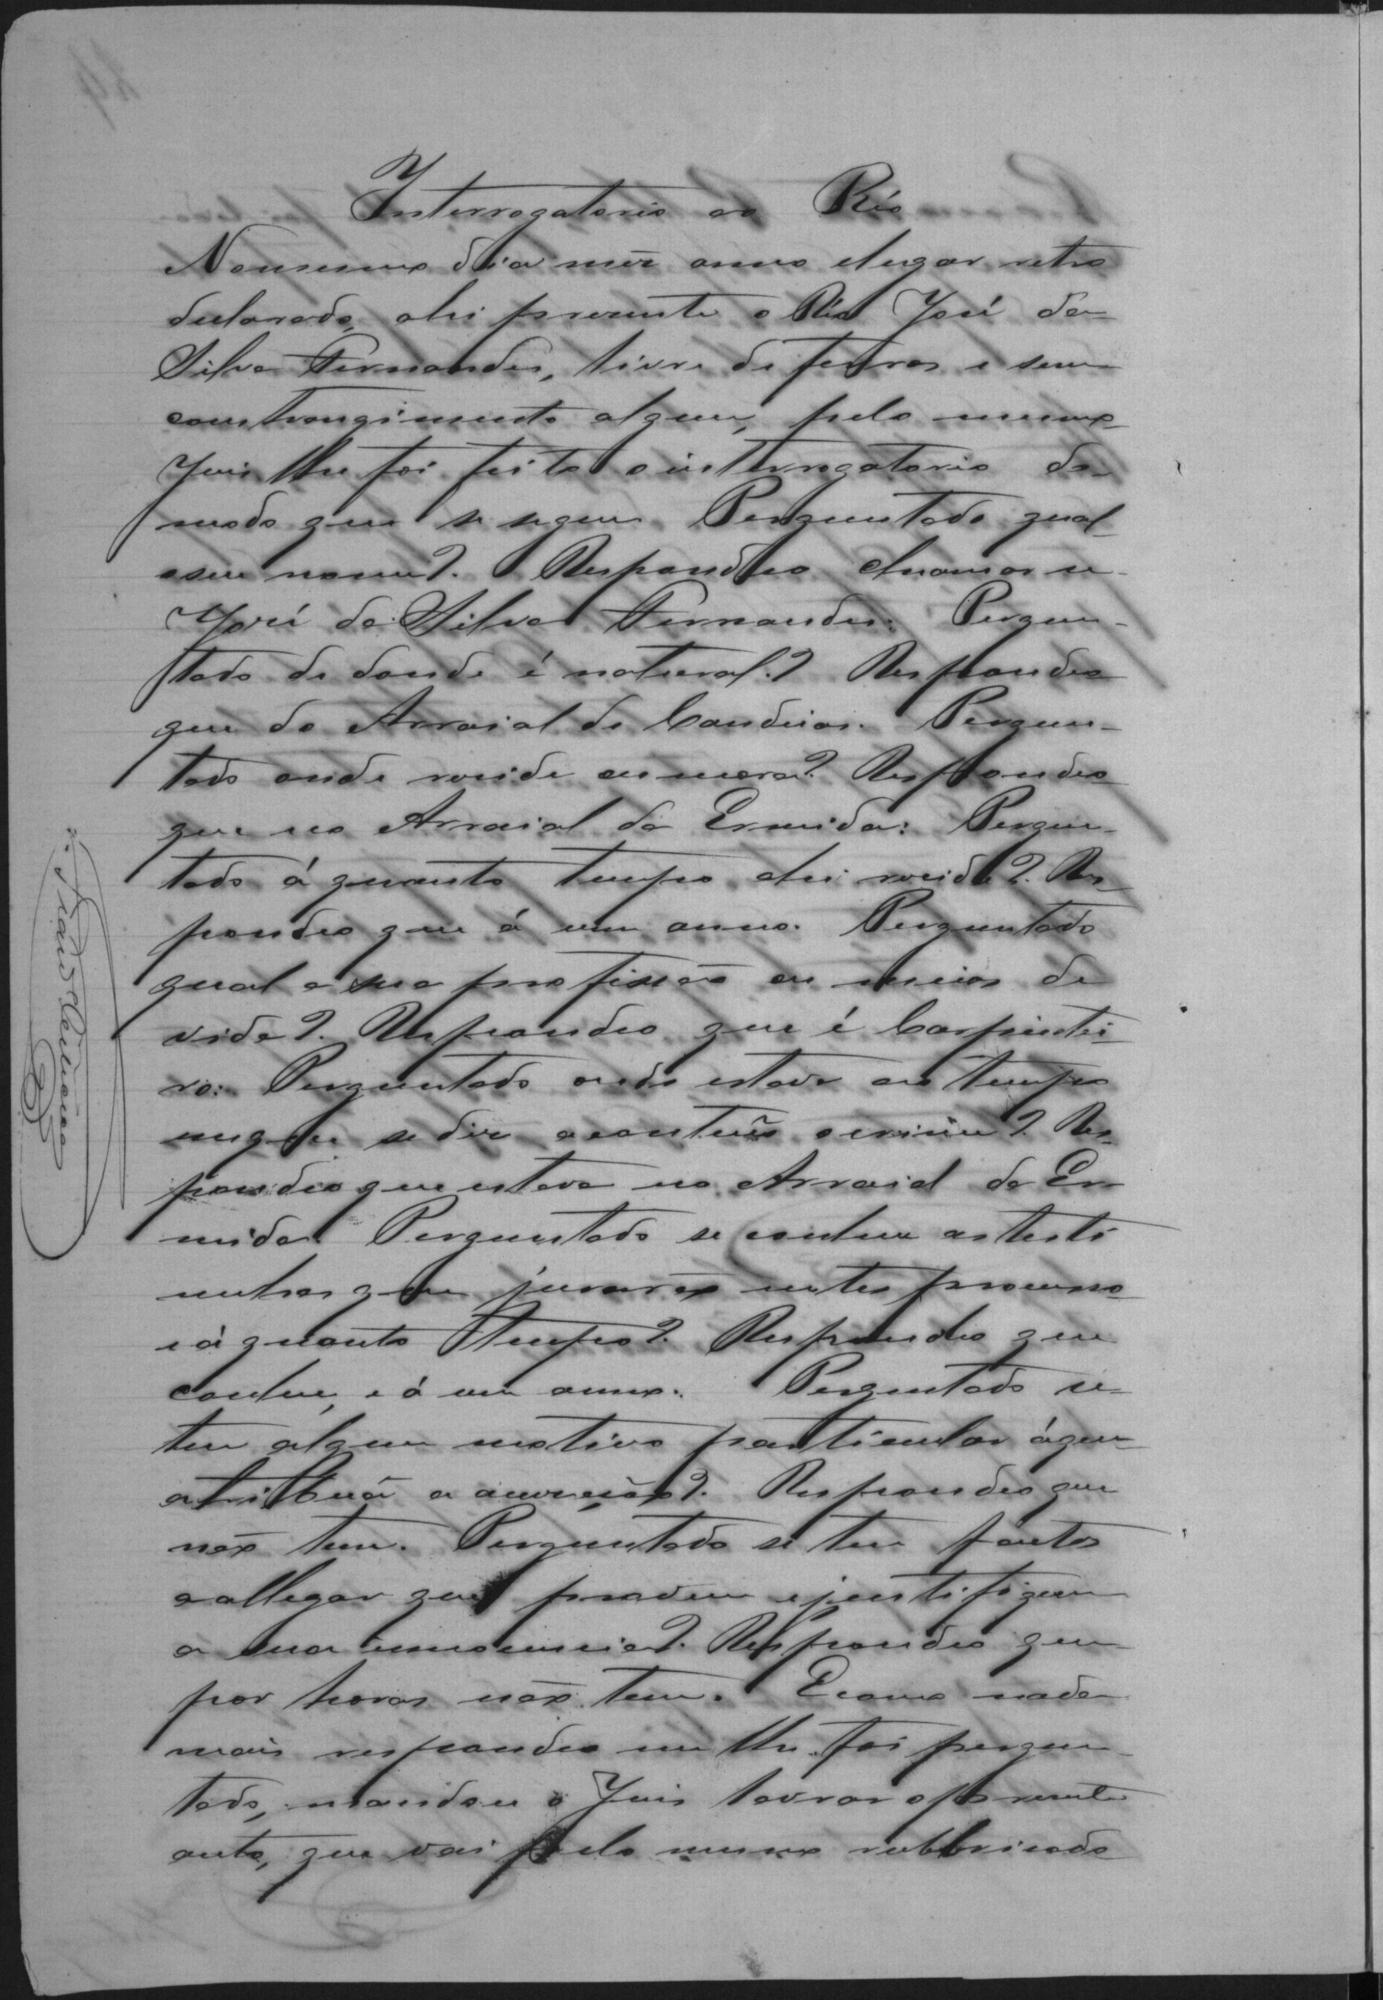 Interrogatorio ao Réo
No mesmo dia mez anno elugar retro
declarado, ahi presente o Réo José da
Silva Fernandes, livre de ferros e sem
constrangimento algum, pelo mesmo
Juis lhe foi feito o interrogatorio do
modo que se segue. Perguntado qual
oseu nome? Respondeo chamar se
José da Silva Fernandes. Pergun-
tado de donde é natural? Respondeo
que do Arraial de Candeias. Pergun-
tado onde reside ou mora? Respondeo
que no Arraial da Ermida: Pergun-
tado á quanto tempo ahi reside? Res-
pondeo que á um anno. Perguntado
qual a sua profissão ou meios de
vida? Respondeo que é Carpintei-
ro: Perguntado onde estava ao tempo
emque se diz aconteceo ocrime? Res-
pondeo que estava no Arraial da Er-
mida. Perguntado se conhece as teste
munhas que jurarão nestes processo
e á quanto tempo? Respondeo que
conhece, e á um anno. Perguntado se
tem algum motivo particular áque
atribua a accusação? Respondeo que
não tem. Perguntado se tem factos
a allegar que provem ejustifiquem
a sua innocencia? Respondeo que
por hora não tem. Ecomo nada
mais respondeo nem lhe foi pergun-
tado, mandou o Juis lavrar opresente
auto, que vai pelo mesmo rubbricado